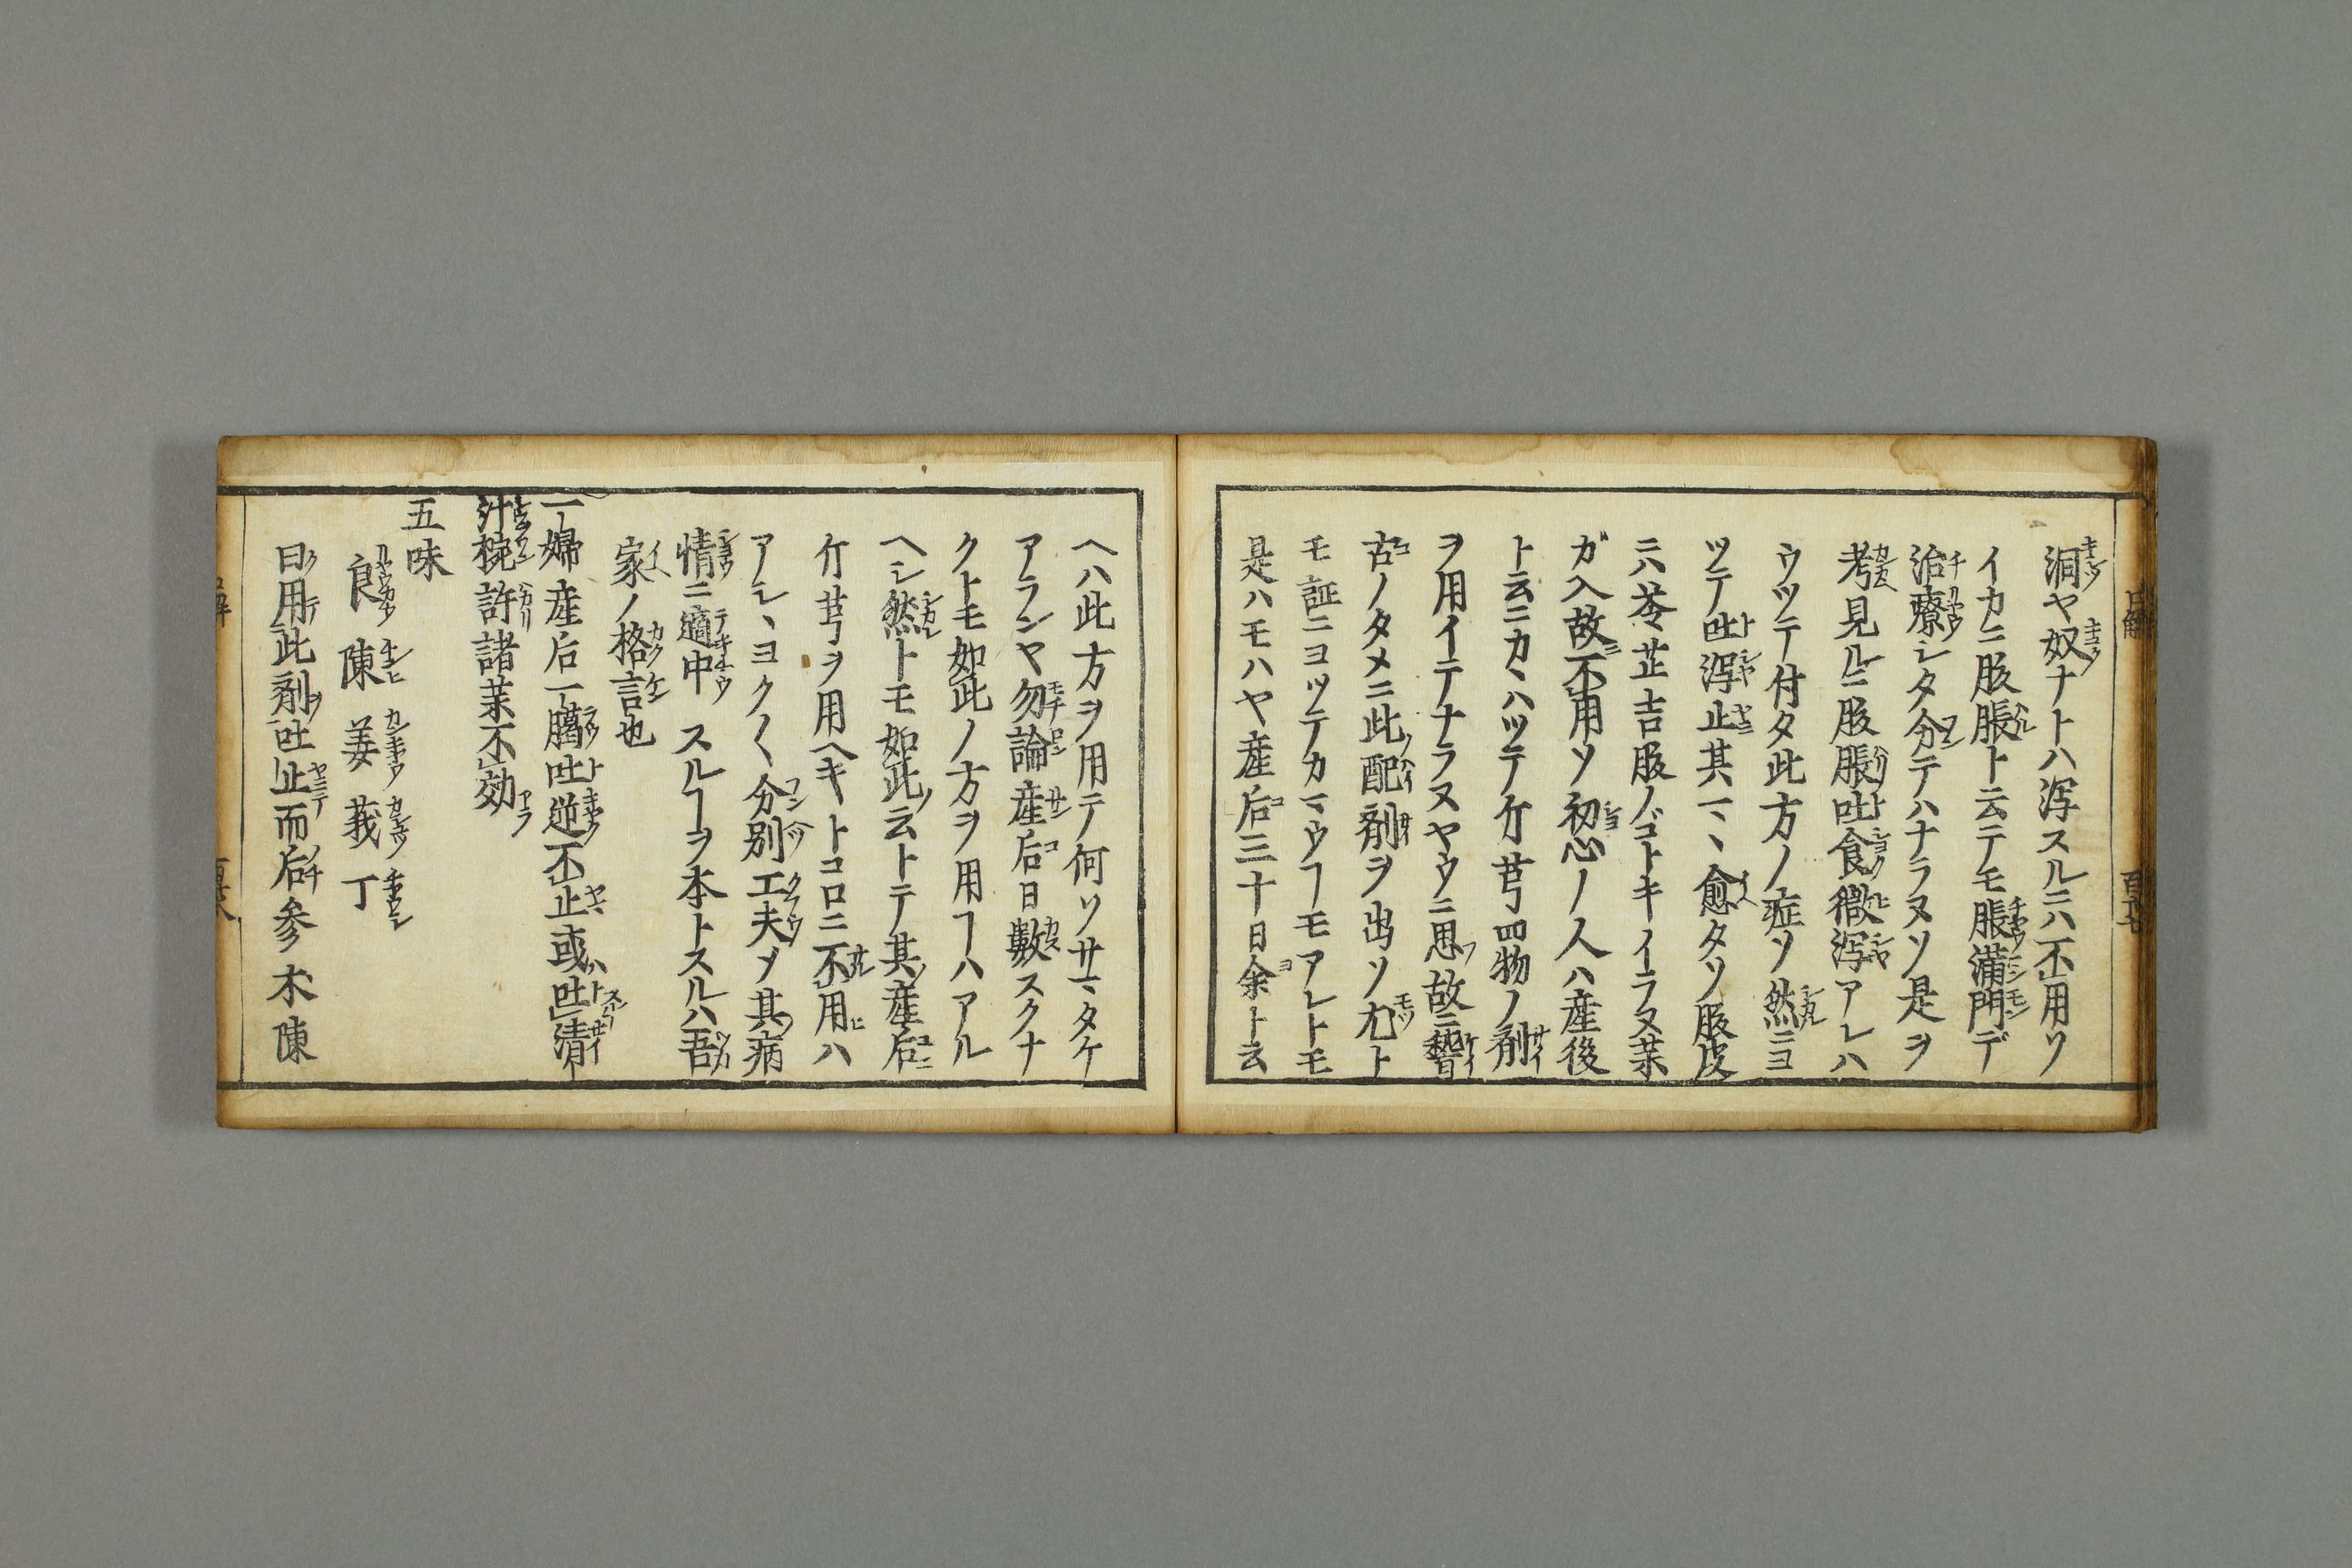 洞ヤ奴ナトハ瀉スルニハ不用ソ
イカニ股脹ト云テモ脹満門デ
治療シタ分テハナラヌソ是ヲ
考見ルニ股脹吐食微瀉アレハ
ウツテ付タ此方ノ症ソ然ニヨ
ツテ吐瀉止其マヽ愈タソ股皮
ニハ苓芷吉股ノゴトキノイラヌ薬
ガ入故不用ソ初心ノ人ハ産後
ト云ニカヽハツテ㐰芎四物ノ剤
ヲ用イテナラヌヤウニ思故ニ
古ノタメニ此配剤ヲ出ソ尤ト
モ証ニヨツテカマウヿモアレトモ
是ハモハヤ産后三十日余ト云
ヘハ此方ヲ用テ何ソサマタケ
アランヤ勿論産后日數スクナ
クトモ如此ノ方ヲ用ヿハアル
ヘシ然トモ如此云トテ其産后
㐰芎ヲ用ヘキトコロニ不用ハ
アシヽヨク〱分別工夫ソ其病
情ニ適中スルヿヲ本トスルハ吾
家ノ格言也
一婦産后一臈吐逆不止或ハ吐清
汁椀許諸薬不効
五味
良 陳 姜 莪 丁
曰用此剤吐止而后参木陳